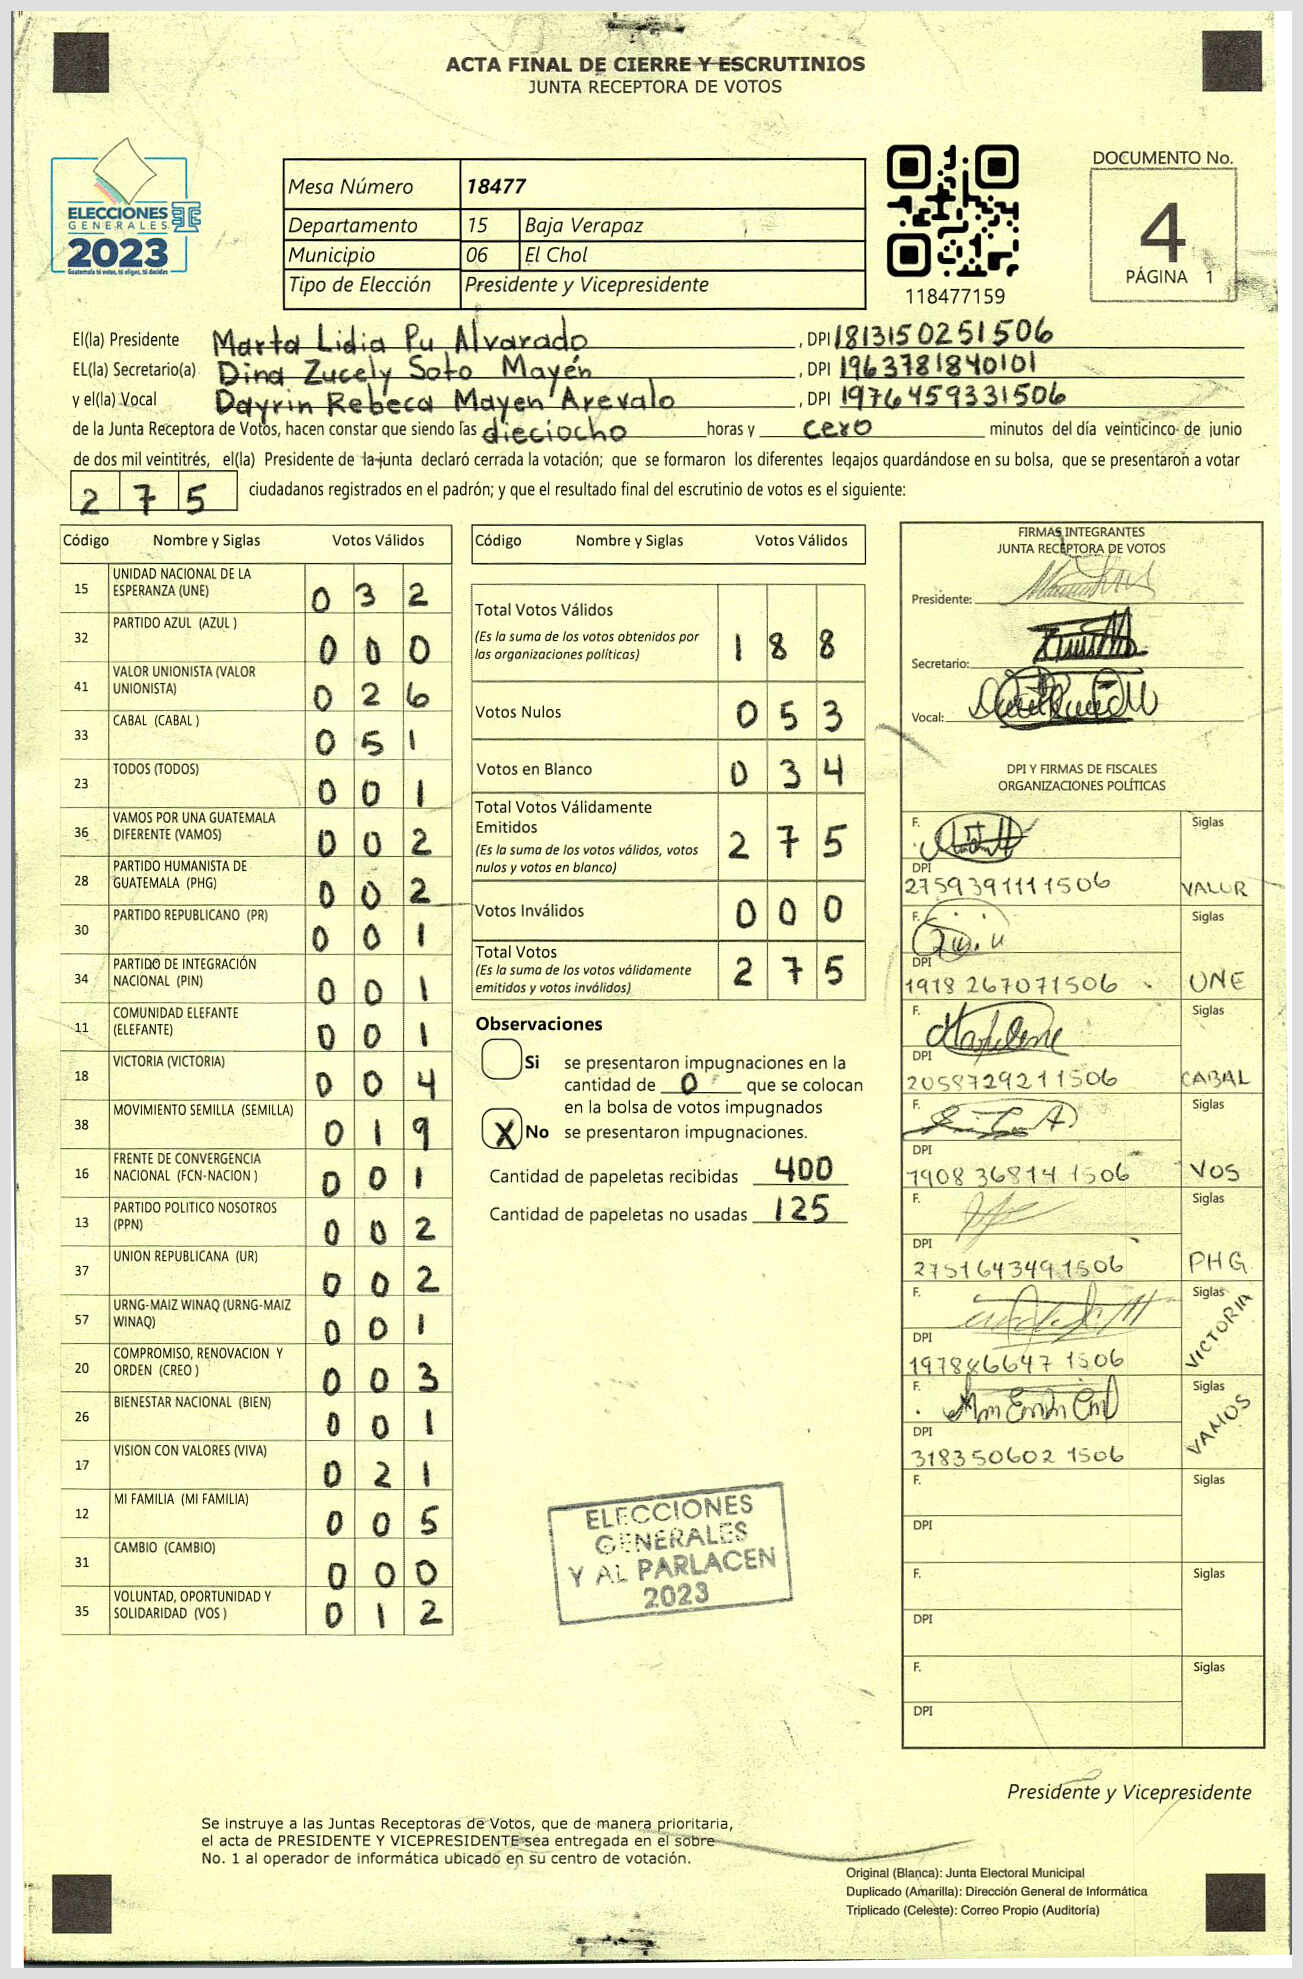 ACTA FINAL DE CIERRE Y ESCRUTINIOS
JUNTA RECEPTORA DE VOTOS
ELECCIONES
GENERALES
2023
Guatemala tú votas, tú eliges, tú decides
Mesa Número 18477
Departamento 15 Baja Verapaz
Municipio 06 El Chol
Tipo de Elección Presidente y Vicepresidente
118477159
DOCUMENTO No.
4
PÁGINA 1
El(la) Presidente Marta Lidia Pu Alvarado , DPI 1813150251506
EL(la) Secretario(a) Dina Zucely Soto Mayén , DPI 1963781840101
y el(la) Vocal Dayrin Rebeca Mayen Arevalo , DPI 1976459331506
de la Junta Receptora de Votos, hacen constar que siendo las dieciocho horas y cero minutos del día veinticinco de junio
de dos mil veintitrés, el(la) Presidente de la junta declaró cerrada la votación; que se formaron los diferentes legajos guardándose en su bolsa, que se presentaron a votar
275 ciudadanos registrados en el padrón; y que el resultado final del escrutinio de votos es el siguiente:
Código Nombre y Siglas Votos Válidos
15 UNIDAD NACIONAL DE LA ESPERANZA (UNE) 0 3 2
32 PARTIDO AZUL (AZUL ) 0 0 0
41 VALOR UNIONISTA (VALOR UNIONISTA) 0 2 6
33 CABAL (CABAL ) 0 5 1
23 TODOS (TODOS) 0 0 1
36 VAMOS POR UNA GUATEMALA DIFERENTE (VAMOS) 0 0 2
28 PARTIDO HUMANISTA DE GUATEMALA (PHG) 0 0 2
30 PARTIDO REPUBLICANO (PR) 0 0 1
34 PARTIDO DE INTEGRACIÓN NACIONAL (PIN) 0 0 1
11 COMUNIDAD ELEFANTE (ELEFANTE) 0 0 1
18 VICTORIA (VICTORIA) 0 0 4
38 MOVIMIENTO SEMILLA (SEMILLA) 0 1 9
16 FRENTE DE CONVERGENCIA NACIONAL (FCN-NACION ) 0 0 1
13 PARTIDO POLITICO NOSOTROS (PPN) 0 0 2
37 UNION REPUBLICANA (UR) 0 0 2
57 URNG-MAIZ WINAQ (URNG-MAIZ WINAQ) 0 0 1
20 COMPROMISO, RENOVACION Y ORDEN (CREO ) 0 0 3
26 BIENESTAR NACIONAL (BIEN) 0 0 1
17 VISION CON VALORES (VIVA) 0 2 1
12 MI FAMILIA (MI FAMILIA) 0 0 5
31 CAMBIO (CAMBIO) 0 0 0
35 VOLUNTAD, OPORTUNIDAD Y SOLIDARIDAD (VOS ) 0 1 2
Código Nombre y Siglas Votos Válidos
Total Votos Válidos 1 8 8
(Es la suma de los votos obtenidos por
las organizaciones políticas)
Votos Nulos 0 5 3
Votos en Blanco 0 3 4
Total Votos Válidamente
Emitidos 2 7 5
(Es la suma de los votos válidos, votos
nulos y votos en blanco)
Votos Inválidos 0 0 0
Total Votos 2 7 5
(Es la suma de los votos válidamente
emitidos y votos inválidos)
Observaciones
Si se presentaron impugnaciones en la
cantidad de 0 que se colocan
en la bolsa de votos impugnados
X No se presentaron impugnaciones.
Cantidad de papeletas recibidas 400
Cantidad de papeletas no usadas 125
ELECCIONES
GENERALES
Y AL PARLACEN
2023
FIRMAS INTEGRANTES
JUNTA RECEPTORA DE VOTOS
Presidente:
Secretario:
Vocal:
DPI Y FIRMAS DE FISCALES
ORGANIZACIONES POLÍTICAS
F. Siglas
DPI
2759391111506 VALOR
F. Siglas
DPI
1918 267071506 UNE
F. Siglas
DPI
2058729211506 CABAL
F. Siglas
DPI
1908 36814 1506 VOS
F. Siglas
DPI
2751643491506 PHG
F. Siglas
DPI VICTORIA
1506
F. Siglas
DPI VAMOS
318350602 1506
F. Siglas
DPI
F. Siglas
DPI
F. Siglas
DPI
Presidente y Vicepresidente
Se instruye a las Juntas Receptoras de Votos, que de manera prioritaria,
el acta de PRESIDENTE Y VICEPRESIDENTE sea entregada en el sobre
No. 1 al operador de informática ubicado en su centro de votación.
Original (Blanca): Junta Electoral Municipal
Duplicado (Amarilla): Dirección General de Informática
Triplicado (Celeste): Correo Propio (Auditoría)